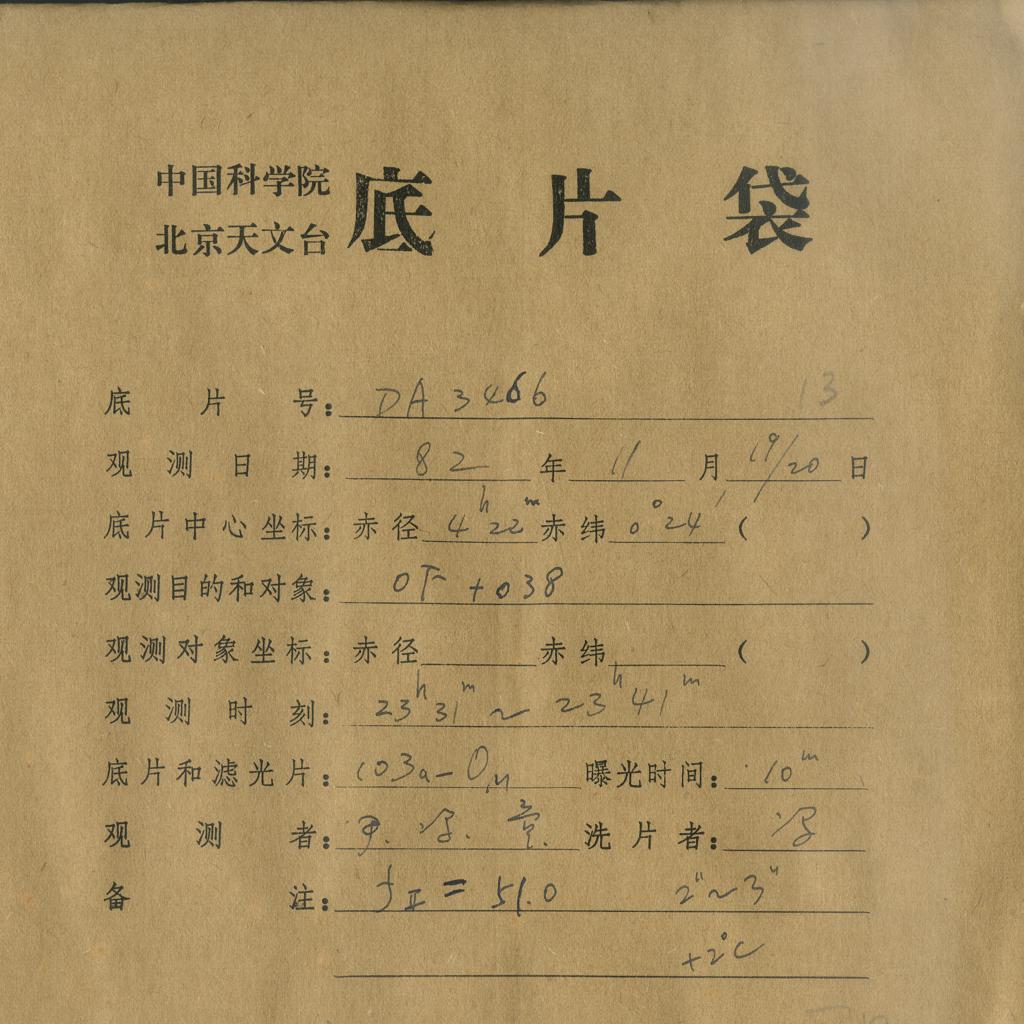 中国科学院
北京天文台
底片袋
底片号: DA 3466 13
观测日期: 82 年 11 月 19/20 日
底片中心坐标: 赤径 4h22m 赤纬 0°24′ ( )
观测目的和对象: OF +038
观测对象坐标: 赤径 赤纬 ( )
观测时刻: 23h31m ~ 23h41m
底片和滤光片: 103a-O 曝光时间: 10m
观测者: 洗片者:
备注: = 51.0 2"~3"
+2°C